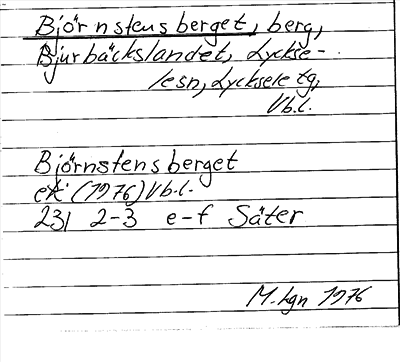 Björnstensberget, berg,
Bjurbäckslandet, Lycksele-
lesn, Lycksele tg,
Vb.l.
Björnstensberget
ek (1976) Vb.l.
231 2-3 e-f Säter
M. Lgn 1976